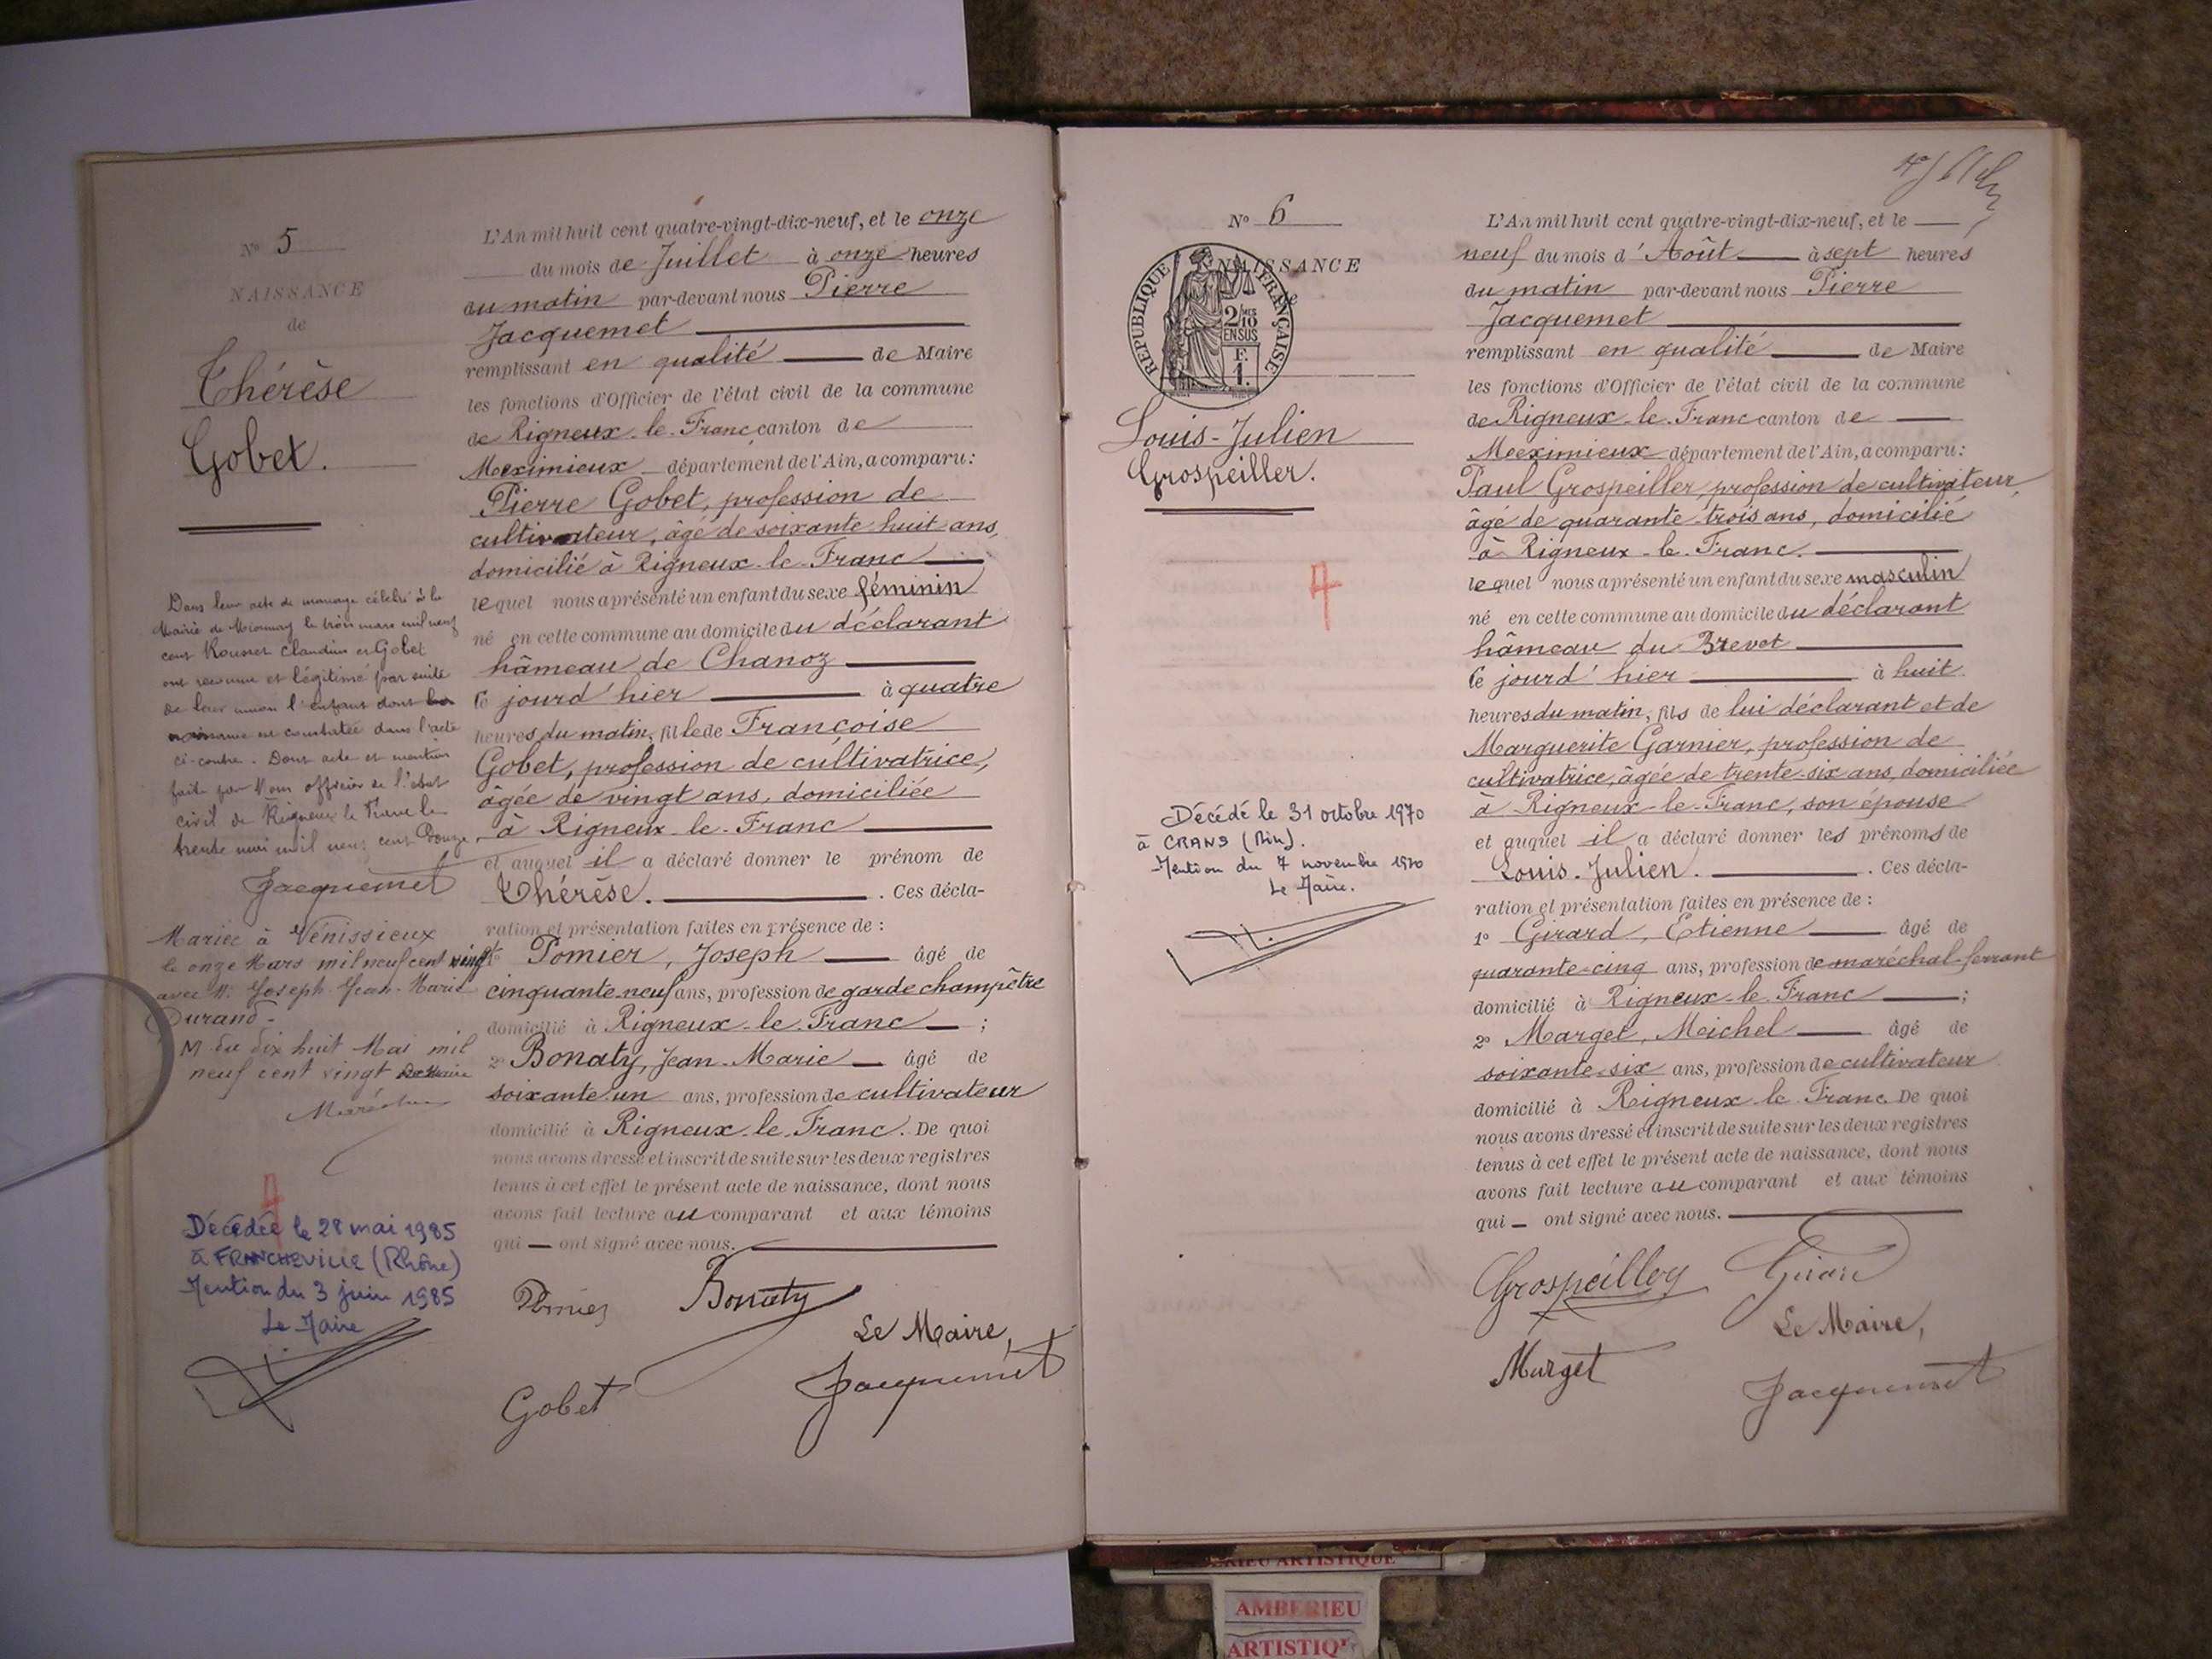 Nº 5
NAISSANCE
de
Thérèse
Gobet.
Dans leur acte de mariage célébré à la
Mairie de le trois mars mil neuf
cent Rousset Claudius et Gobet
ont reconnu et légitimé par suite
de leur union l'enfant dont la
naissance est constatée dans l'acte
ci-contre. Dont acte et mention
faite par Nous officier de l'état
civil de Rigneux le Franc le
trente mai mil neuf cent Douze.
Jacquemet
Mariée à Vénissieux
le onze Mars mil neuf cent vingt
avec M. Joseph-Jean-Marie
Durand-
M du dix huit Mai mil
neuf cent vingt Le Maire
4
Décédée le 28 mai 1985
à FRANCHEVILLE (Rhône)
Mention du 3 juin 1985
Le Maire
L'An mil huit cent quatre-vingt-dix-neuf, et le onze
du mois de Juillet à onze heures
du matin par-devant nous Pierre
Jacquemet
remplissant en qualité de Maire
les fonctions d'Officier de l'état civil de la commune
de Rigneux-le-Franc, canton de
Meximieux département de l'Ain, a comparu:
Pierre Gobet, profession de
cultivateur, âgé de soixante huit ans,
domicilié à Rigneux-le-Franc
lequel nous a présenté un enfant du sexe féminin
né en cette commune au domicile du déclarant
hâmeau de Chanoz
le jourd'hier à quatre
heures du matin, fille de Françoise
Gobet, profession de cultivatrice,
âgée de vingt ans, domiciliée
à Rigneux-le-Franc
et auquel il a déclaré donner le prénom de
Thérèse. . Ces décla-
ration et présentation faites en présence de :
1º Pomier, Joseph âgé de
cinquante-neuf ans, profession de garde champêtre
domicilié à Rigneux-le-Franc ;
2º Bonaty, Jean-Marie âgé de
soixante-un ans, profession de cultivateur
domicilié à Rigneux-le-Franc. De quoi
nous avons dressé et inscrit de suite sur les deux registres
tenus à cet effet le présent acte de naissance, dont nous
avons fait lecture au comparant et aux témoins
qui ont signé avec nous.
Pomier Bonaty
Le Maire,
Gobet Jacquemet
Nº 6
NAISSANCE
RÉPUBLIQUE FRANÇAISE
2/10
EN SUS
F.
1.
Louis-Julien
Grospeiller.
4
Décédé le 31 octobre 1970
à CRANS (Ain).
Mention du 7 novembre 1970
Le Maire.
L'An mil huit cent quatre-vingt-dix-neuf, et le
neuf du mois d'Août à sept heures
du matin par-devant nous Pierre
Jacquemet
remplissant en qualité de Maire
les fonctions d'Officier de l'état civil de la commune
de Rigneux-le-Franc canton de
Meximieux département de l'Ain, a comparu:
Paul Grospeiller, profession de cultivateur,
âgé de quarante-trois ans, domicilié
à Rigneux-le-Franc.
lequel nous a présenté un enfant du sexe masculin
né en cette commune au domicile du déclarant
hâmeau du Brevet
le jourd'hier à huit
heures du matin, fils de lui déclarant et de
Marguerite Garnier, profession de
cultivatrice, âgée de trente-six ans, domiciliée
à Rigneux-le-Franc, son épouse
et auquel il a déclaré donner les prénoms de
Louis-Julien. . Ces décla-
ration et présentation faites en présence de :
1º Girard, Etienne âgé de
quarante-cinq ans, profession de maréchal-ferrant
domicilié à Rigneux-le-Franc ;
2º Marget, Michel âgé de
soixante-six ans, profession de cultivateur
domicilié à Rigneux-le-Franc. De quoi
nous avons dressé et inscrit de suite sur les deux registres
tenus à cet effet le présent acte de naissance, dont nous
avons fait lecture au comparant et aux témoins
qui ont signé avec nous.
Grospeiller Girard
Le Maire,
Marget
Jacquemet
AMBERIEU ARTISTIQUE
AMBERIEU
ARTISTIQU